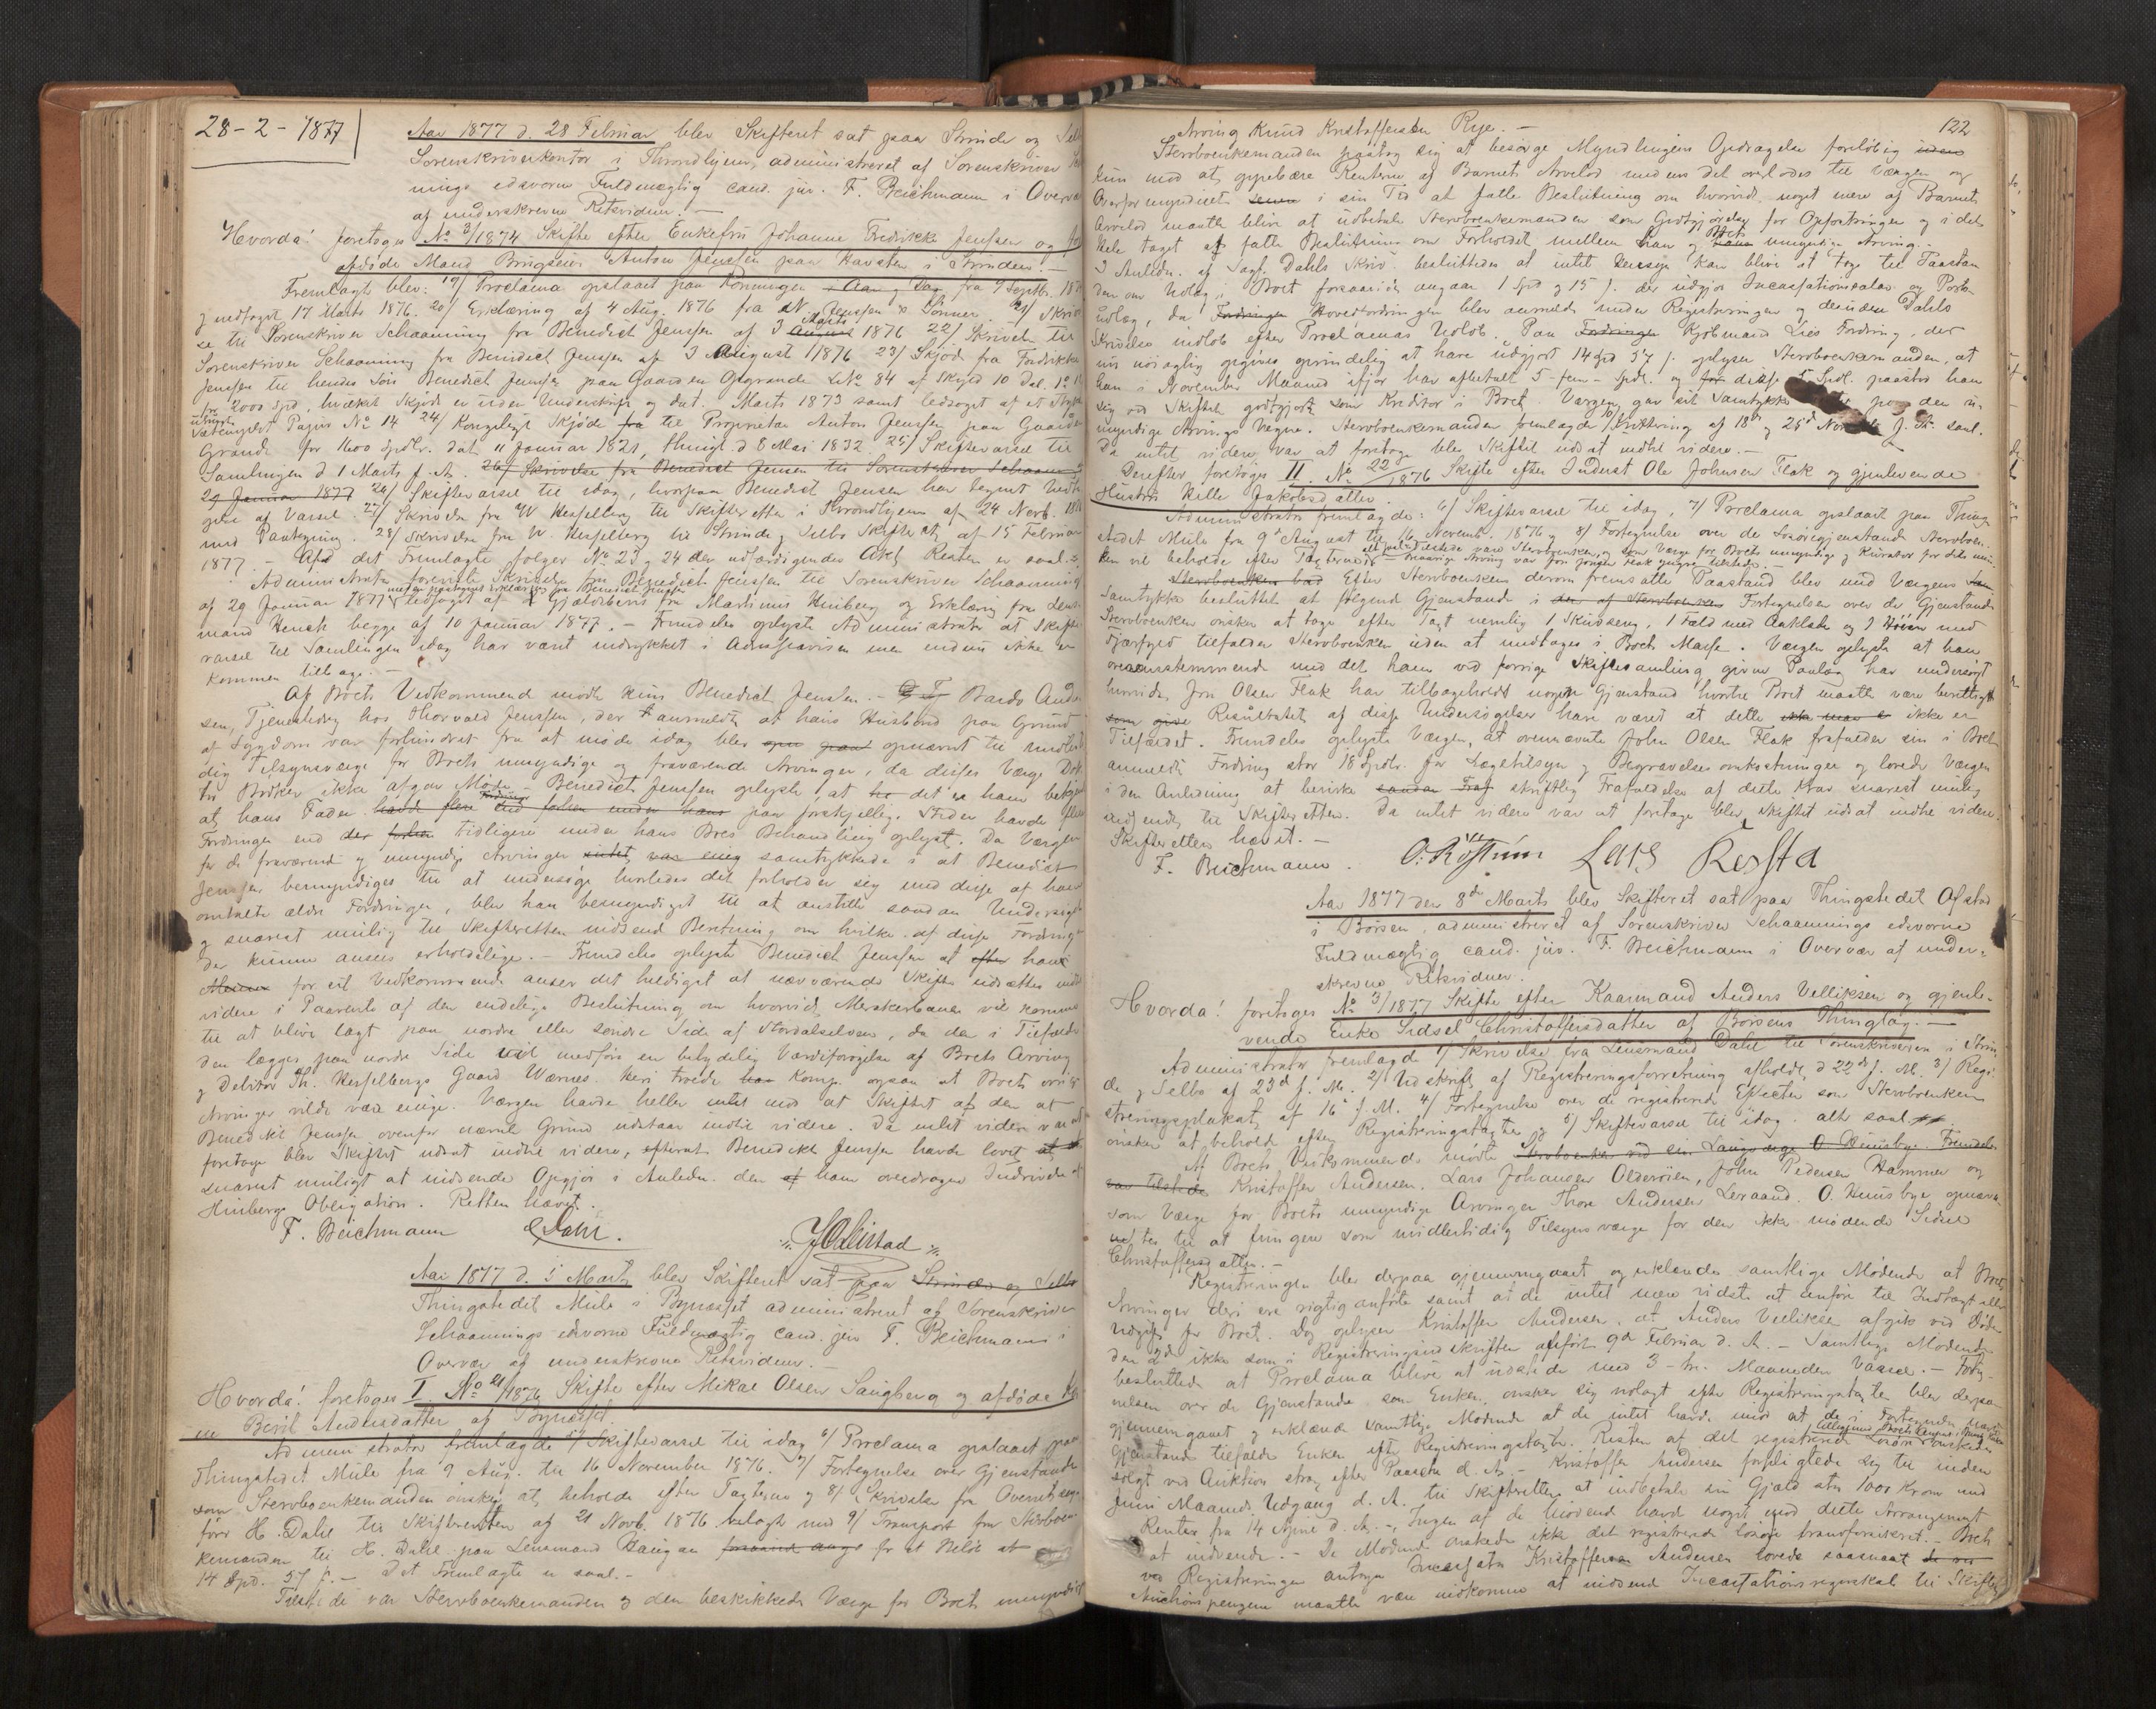 28-2-1877
Aar 1877 d. 28 Februar blev Skifteret sat paa Strinde og Selbo
Sorenskriverkontor i Throndhjem, administreret af Sorenskriver
nings edsvorne Fuldmægtig cand. jur. F. Beichmann i Overvær
af underskrevne Retsvidner. —
Hvorda! foretoges No 3/1874 Skifte efter Enkefru Johanne Fredrikke Jenssen og
afdøde Mand Brugseier Anton Jenssen paa Havsten i Strinden. —
Fremlagt blev: 19/ Proclama opslaaet paa fra 9 Septbr. 187
og nedtaget 17 Marts 1876. 20/ Erklæring af 4 Aug. 1876 fra N. Jenssen & Sønner. 21/ Skrivel
se til Sorenskriver Schaanning fra Benedict Jenssen af 3 August Marts 1876 22/ Skrivelse til
Sorenskriver Schaanning fra Benedict Jenssen af 3 August 1876 23/ Skjøde fra Fredrikke
Jenssen til hendes Søn Benedict Jenssen paa Gaarden Grande LNo 84 af Skyld 10 Dal.
for 2000 Spd, hvilket Skjøde er uden Underskrift og dat. Marts 1873 samt ledsaget af et
Papir No 14 24/ Kongeligt Skjøde fra til Proprietær Anton Jenssen paa Gaarden
Grande for 1600 Spdlr. dat 11 Januar 1821, thingl. d 8 Mai 1832 25/ Skiftevarsel til
Samlingen d 1 Marts f. A. 26/ Skrivelse fra Benedict Jenssen til Sorenskriver Schaanning
29 Januar 1877 26/ Skiftevarsel til idag, hvorpaa Benedict Jenssen har tegnet Vedta
gelse af Varsel. 27/ Skrivelse fra W Hesselberg til Skifteretten i Throndhjem af 24 Novb. 1876
med Paategning. 28/ Skrivelse fra W. Hesselberg til Strinde og Selbo Skifteret af 15 Februar
1877. — Af det Fremlagte følger No 23 og 24 den udfærdigende Akt, Resten er saal.
Administrator foreviste Skrivelse fra Benedict Jenssen til Sorenskriver Schaanning
af 29 Januar 1877 ledsaget af Gjældsbevis fra Martinus Huiberg og Erklæring fra Lens
mand Hench begge af 10 Januar 1877. — Fremdeles oplyste Administrator at Skifte
varsel til Samlingen idag har været indrykket i Adresseavisen men endnu ikke er
kommen tilbage. —
Af Boets Vedkommende mødte kun Benedict Jenssen. — Bardo Ander
sen, Tjenestkarl hos Thorvald Jenssen, der anmeldte at hans Husbond paa Grund
af Sygdom var forhindret fra at møde idag blev opnævnt til midlerti
dig Tilsynsværge for Boets umyndige og fraværende Arvinger, da disses Værge Dok
tor ikke afgav Møde. Benedict Jenssen oplyste, at det er ham bekjendt
at hans Fader paa forskjellige Steder havde flere
Fordringer end der tidligere under hans Boes Behandling oplyst. Da Værgen
for de fraværende og umyndige Arvinger samtykkede i at Benedict
Jenssen bemyndiges til at undersøge hvorledes det forholder sig med disse af ham
omtalte ældre Fordringer, blev han bemyndiget til at anstille saadan Undersøgelse
og snarest mulig til Skifteretten indsende Beretning om hvilke af disse Fordringer
der kunne ansees erholdelige. — Fremdeles oplyste Benedict Jenssen at han
for sit Vedkommende anser det heldigst at nærværende Skifte udsættes indtil
videre i Paavente af den endelige Beslutning om hvorvidt Merakerbanen vil komme
til at blive lagt paa nordre eller søndre Side af Stjørdalselven, da den i Tilfælde
den lægges paa nordre Side vil medføre en betydelig Værdiforøgelse af Boets Arving
og Debitor Th. Hesselbergs Gaard Wærnes. Heri troede Komp. ogsaa at Boets øvrige
Arvinger vilde være enige. Værgen havde heller intet imod at Skiftet af den af
Benedikt Jenssen ovenfor nævnte Grund udstaar indtil videre. Da intet videre var at
foretage blev Skiftet udsat indtil videre, efterat Benedikt Jenssen havde lovet
snarest muligt at indsende Opgjør i Anledn. den af ham overdragne Inddrivelse af
Huibergs Obligation. Retten hævet.
F. Beichmann Dahl.
Aar 1877 d. 5 Marts blev Skifteret sat paa Strinde og Selbo
Thingstedet Mule i Bynesset administreret af Sorenskriver
Schaannings edsvorne Fuldmægtig cand. jur F. Beichmann i
Overvær af underskrevne Retsvidner. —
Hvorda! foretoges I No 21/1876 Skifte efter Mikal Olsen Saugberg og afdøde
ne Berit Andersdatter af Bynesset.
Administrator fremlagde 5/ Skiftevarsel til idag 6/ Proclama opslaaet paa
Thingstedet Mule fra 9 Aug. til 16 November 1876. 7/ Fortegnelse over Gjenstande
som Stervboenkemanden ønsker at beholde efter Taxterne og 8/ Skrivelse fra Overretssag
fører H. Dahl til Skifteretten af 21 Novb. 1876 belagt med 9/ Transport fra Stervboen
kemanden til H. Dahl paa Lensmand Haugan for et Beløb
14 Spd. 57 s. — Det Fremlagte er saal. —
Tilstede var Stervboenkemanden og den beskikkede Værge for Boets umyndige
122
Arving Knud Kristoffersen Rye. —
Stervboenkemanden paatog sig at besørge Myndlingens Opdragelse foreløbig uden
kun mod at oppebære Renterne af Barnets Arvelod medens det overlodes til Værgen og
Overformynderiet i sin Tid at fatte Beslutning om hvorvidt noget mere af Barnets
Arvelod maatte blive at udbetale Stervboenkemanden som Godtgjørelse for Opfostringen og i det
Hele taget at fatte Beslutning om Forholdet mellem ham og hans Boets umyndige Arving. —
I Anledn. af Sagf. Dahls Skriv. besluttedes at intet Hensyn kan blive at tage til Paastan
den om Udlæg i Boet forsaavidt angaar 1 Spd og 15 s. der udgjør Incassationssalær og Porto
udlæg, da Fordringen Hovedfordringen blev anmeldt under Registreringen og desuden Dahls
Skrivelse indløb efter Proclamas Udløb. Paa Fordringen Kjøbmand Lies Fordring, der
nu nøiagtig opgives oprindelig at have udgjort 14 Spd 57 s. oplyser Stervboenkemanden, at
han i November Maaned ifjor har afbetalt 5 - fem - Spdl. og for disse 5 Spdl. paastod han
sig ved Skiftet godtgjort som Kreditor i Boet. Værgen gav sit Samtykke paa den u-
myndige Arvings Vegne. Stervboenkemanden fremlagde 10/ Kvittering af 18d og 25d f. A. saal.
Da intet videre var at foretage blev Skiftet udsat indtil videre. —
Derefter foretoges II. No 22/1876 Skifte efter Inderst Ole Johnsen Flak og gjenlevende
Hustru Kille Jakobsdatter.
Administrator fremlagde: 6/ Skiftevarsel til idag, 7/ Proclama opslaaet paa Thing-
stedet Mule fra 9 August til 16 Novemb. 1876 og 8/ Fortegnelse over de Løsøregjenstande Stervboen-
ken vil beholde efter Taxterne.
Stervboenken bad Efter Stervboenkens derom fremsatte Paastand blev med Værgens
Samtykke besluttet at følgende Gjenstande i den af Stervboenken Fortegnelsen over de Gjenstande
Stervboenken ønsker at tage efter Taxt nemlig 1 Skindseng, 1 Fæld med Aaklæde og med
Fjærfyld tilfalder Stervboenken uden at medtages i Boets Masse. Værgen oplyste at han
overensstemmende med det ham ved forrige Skiftesamling givne Paalæg har undersøgt
hvorvidt Jon Olsen Flak har tilbageholdt nogen Gjenstand hvortil Boet maatte være berettiget
Resultatet af disse Undersøgelser have været at dette ikke er
Tilfældet. Fremdeles oplyste Værgen, at ovennævnte John Olsen Flak frafalder sin i Boet
anmeldte Fordring stor 18 Spdlr. for Lægetilsyn og Begravelsesomkostninger og lovede Værgen
i den Anledning at bevirke saadan Fraf skriftlig Frafaldelse af dette Krav snarest mulig
indsendt til Skifteretten. Da intet videre var at foretage blev Skiftet udsat indtil videre.
Skifteretten hævet. —
F. Beichmann. O. Røstum Lars Resta
Aar 1877 den 8de Marts blev Skifteret sat paa Thingstedet Ofstad
i Børsen, administreret af Sorenskriver Schaannings edsvorne
Fuldmægtig cand. jur. F. Beichmann i Overvær af under-
skrevne Retsvidner.
Hvorda! foretoges No 3/1877 Skifte efter Kaarmand Anders Velliksen og gjenle-
vende Enke Sidsel Christoffersdatter af Børsens Thinglag. —
Administrator fremlagde 1/ Skrivelse fra Lensmand Dahl til Sorenskriveren i Strin
de og Selbo af 23d f. M. 2/ Udskrift af Registreringsforretning afholdt d 22d f. M. 3/ Regi-
streringsplakat af 16d f. M. 4/ Fortegnelse over de registrerede Effecter som Stervboenken
ønsker at beholde efter Registreringstaxten og 5/ Skiftevarsel til idag. alt saal.
Af Boets Vedkommende mødte Stervboenken ved sin Laugværge O. Huusbye. Fremdeles
var tilstede Kristoffer Andersen. Lars Johansen Olderøien, John Pedersen Hammer og
som Værge for Boets umyndige Arvinger Thore Andersen Leraand. O. Huusbye opnævn
tes til at fungere som midlertidig Tilsynsværge for den ikke mødende Sidsel
Christoffersdatter. —
Registreringen blev derpaa gjennemgaaet og erklærede samtlige Mødende at Boets
Arvinger deri ere rigtig anførte samt at de intet mere vidste at anføre til Indtægt eller
Udgift for Boet. Dog oplyser Kristoffer Andersen, at Anders Velliksen afgik ved Døden
den 2d ikke som i Registreringsudskriften anført 9d Februar d. A. — Samtlige Mødende
besluttede at Proclama blive at udstede med 3 - tre - Maaneders Varsel. — Forteg-
nelsen over de Gjenstande som Enken ønsker sig udlagt efter Registreringstaxten blev derpaa
gjennemgaaet og erklærede samtlige Mødende at de intet havde imod at de i Fortegnelsen nævnte
Gjenstande tilfalder Enken efter Registreringstaxten. Resten af det registrerede Løsøre ønskedes
solgt ved Auktion strax efter Paaske d. A. — Kristoffer Andersen forpligtede sig til inden
Juni Maaneds Udgang d. A. til Skifteretten at indbetale sin Gjæld stor 1000 Kroner med
Renter fra 14 April d. A. —, Ingen af de Mødende havde noget imod dette Arrangement
at indvende. — De Mødende ønskede ikke det registrerede Løsøre brandforsikret. — Boets
ved Registreringen antagne Incassator Kristoffer Andersen lovede saasnart
Auctionspengene maatte være indkomne at indsende Incassationsregnskab til Skifte